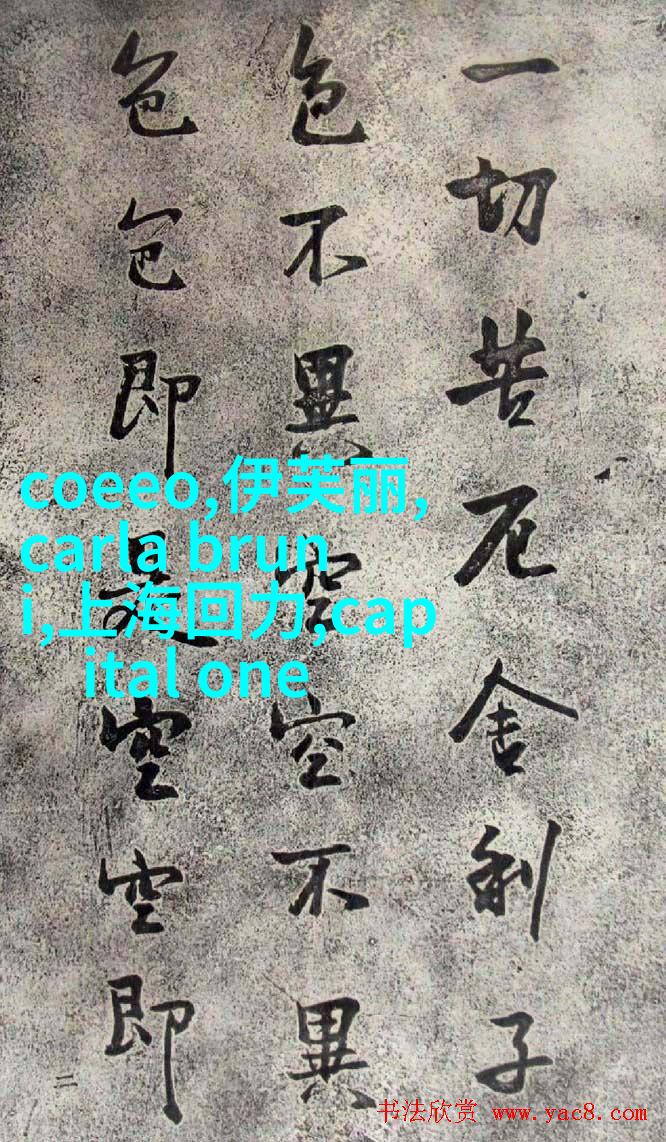 一切苦厄舍利子
色不異空空不異
色色即是空空即
二
coeeo,伊芙丽,
carla brun
i,上海回力,cap
ital one
书法欣赏 www.yac8.com